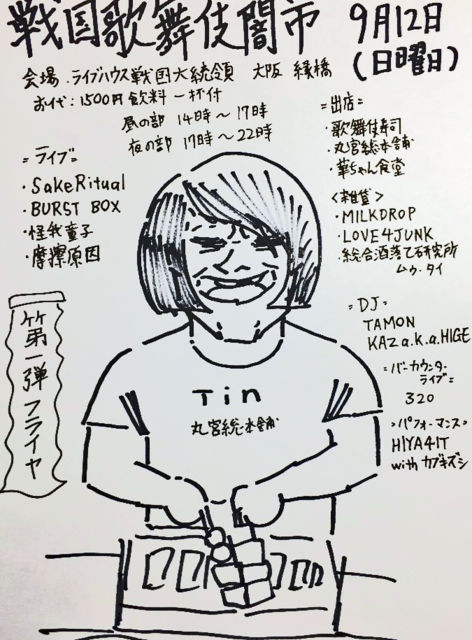 戦国歌舞伎闇市
9月12日
(日曜日)
会場:ライブハウス戦国大統領 大阪 縁橋
お代:1500円 飲料一杯付
昼の部 14時〜17時
夜の部 17時〜22時
=ライブ=
・SakeRitual
・BURST BOX
・怪我童子
・摩擦原因
=出店=
・歌舞伎寿司
・丸宮総本舗
・華ちゃん食堂
<雑貨>
・MILKDROP
・LOVE4JUNK
・総合洒落て研究所
ムゥ・タイ
=DJ=
TAMON
KAZ a.k.a.HIGE
=バーカウンター
ライブ=
320
>パフォーマンス>
HIYA4IT
with カブキズシ
第一弾フライヤ
Tin
丸宮総本舗